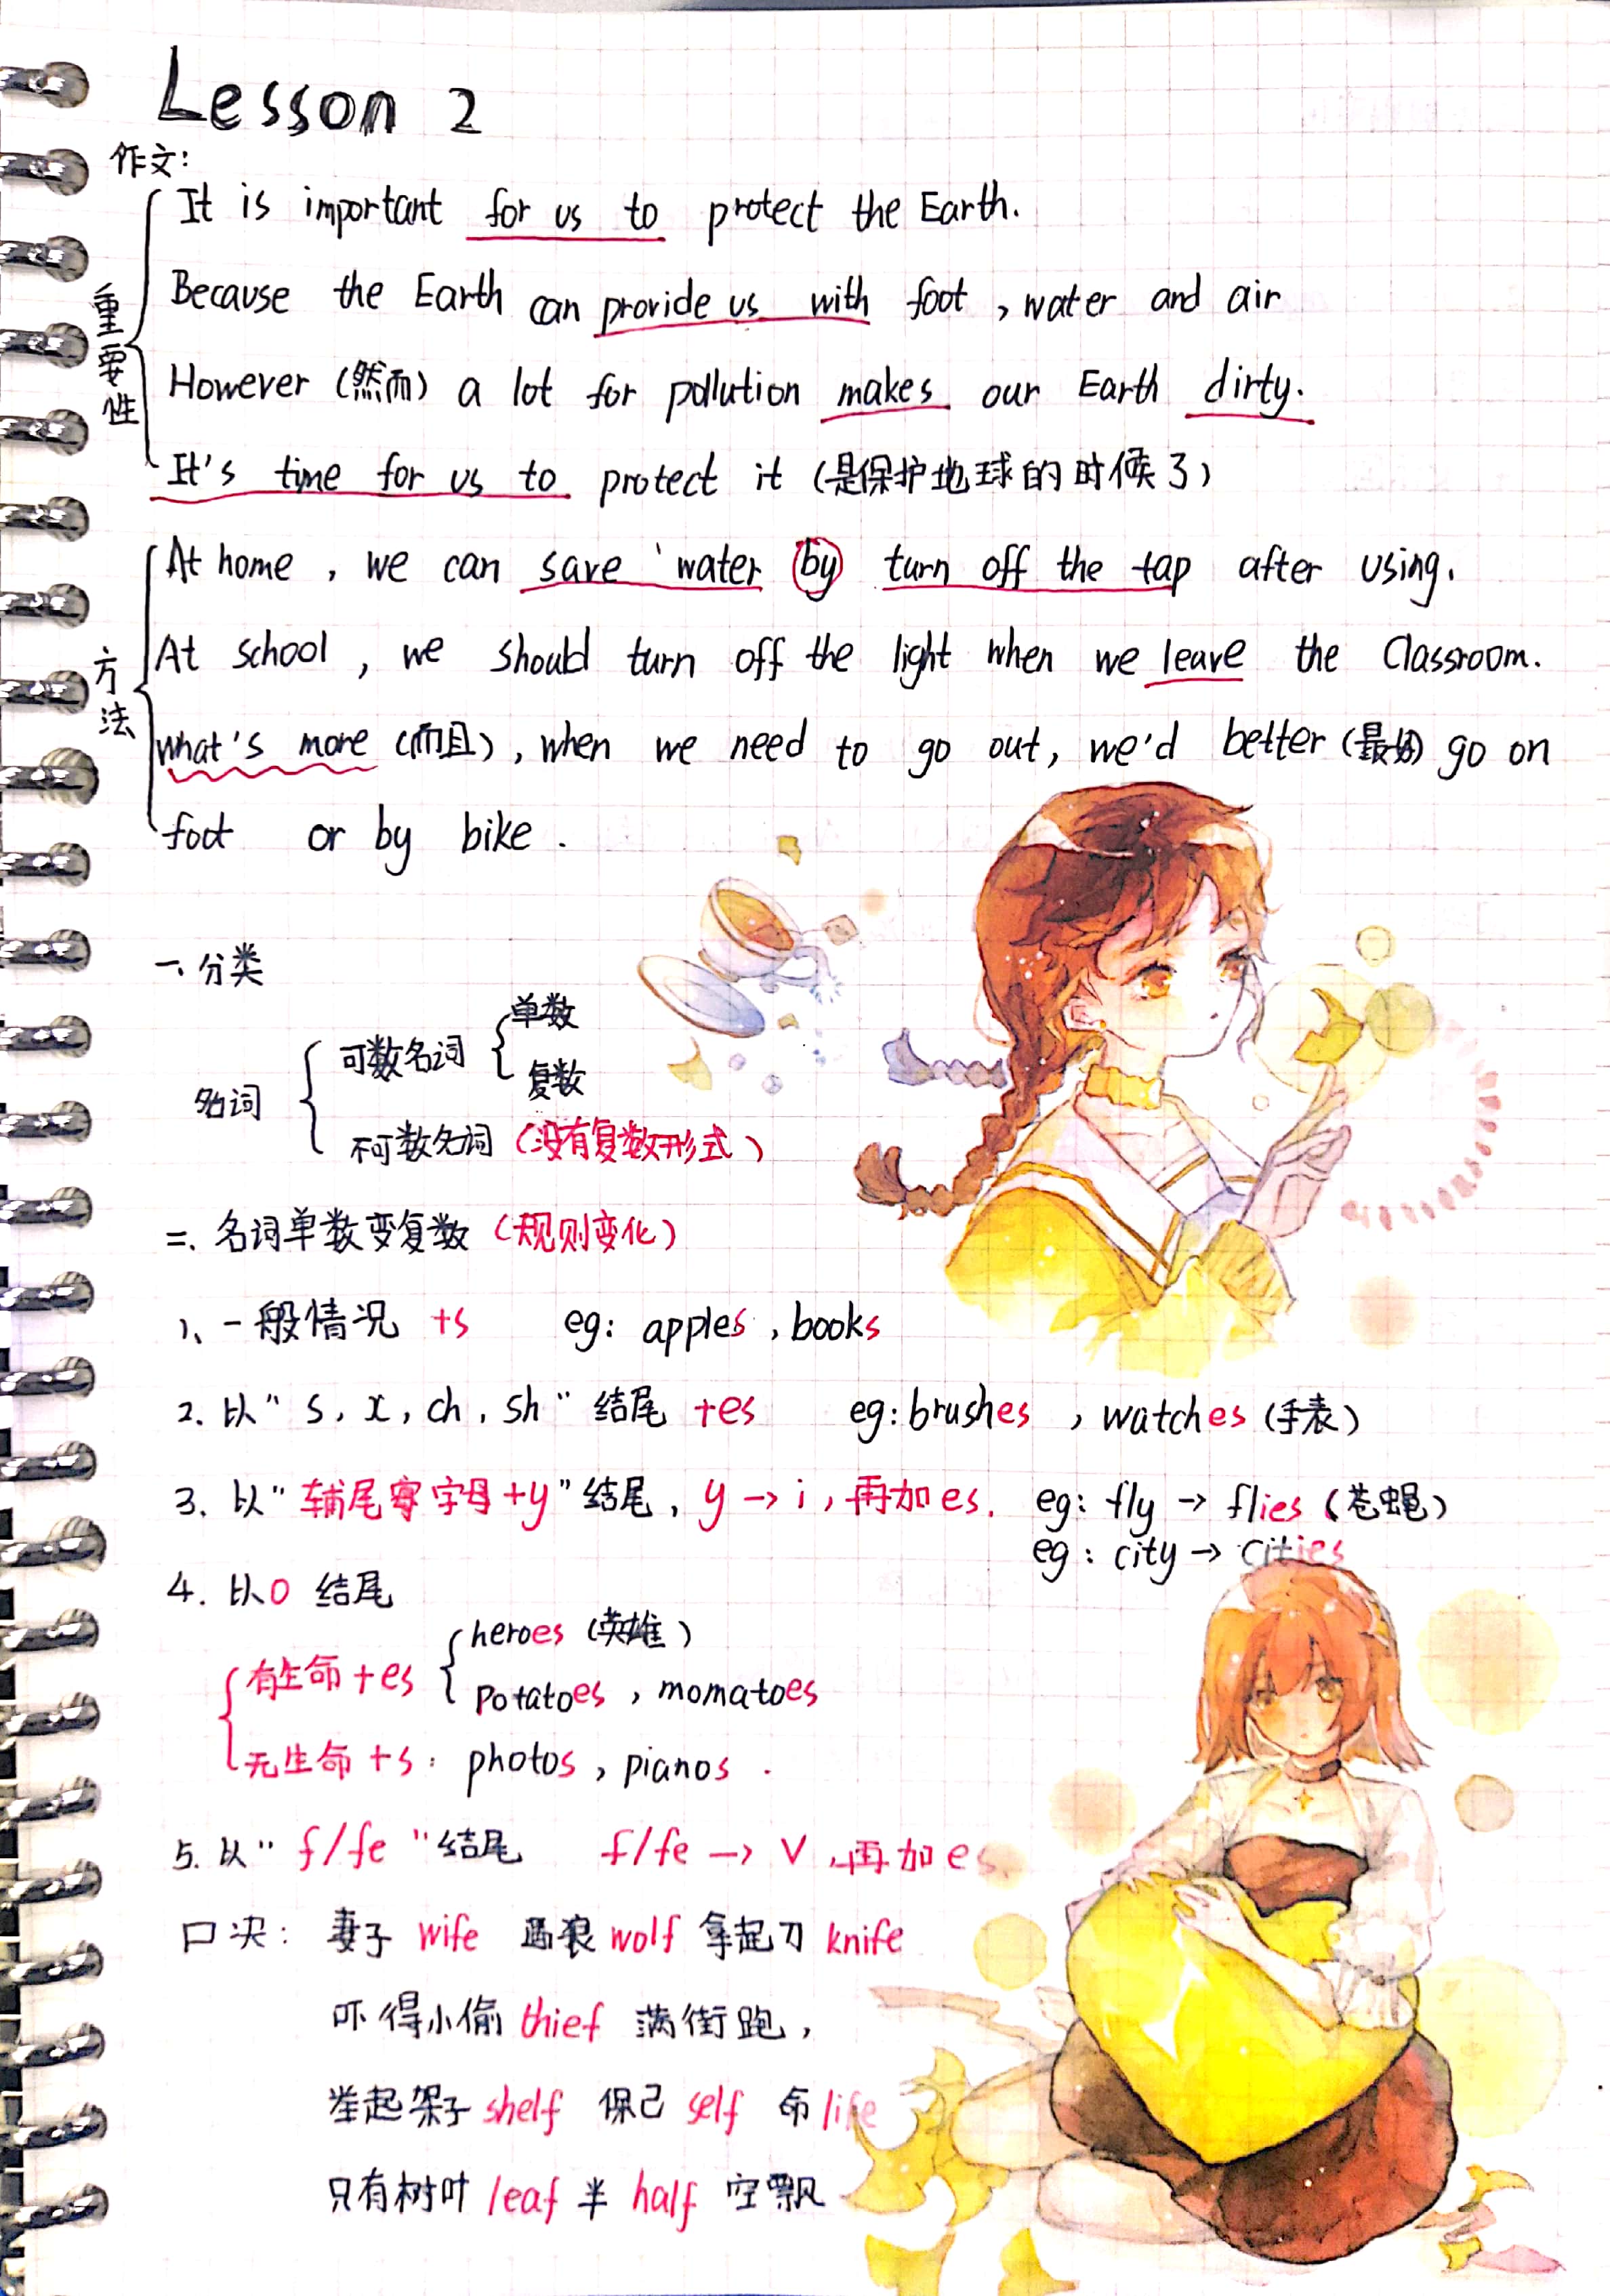 Lesson 2
作文:
重要性
It is important for us to protect the Earth.
Because the Earth can provide us with foot , water and air
However (然而) a lot for pollution makes our Earth dirty.
It's time for us to protect it (是保护地球的时候了)
方法
At home , we can save water by turn off the tap after using.
At school , we should turn off the light when we leave the Classroom.
what's more (而且) , when we need to go out, we'd better (最好) go on
foot or by bike .
一、分类
名词
可数名词
单数
复数
不可数名词 (没有复数形式)
二、名词单数变复数 (规则变化)
1、一般情况 +s eg: apples , books
2. 以" s, x, ch, sh " 结尾 +es eg: brushes , watches (手表)
3. 以" 辅尾音字母+y "结尾, y → i , 再加es. eg: fly → flies (苍蝇)
eg: city → cities
4. 以o 结尾
有生命 +es
heroes (英雄)
potatoes , momatoes
无生命 +s : photos , pianos .
5. 以" f/fe "结尾 f/fe → v ,再加es
口决: 妻子 wife 狼 wolf 拿起刀 knife
吓得小偷 thief 满街跑 ,
举起架子 shelf 保己 self 命 life
只有树叶 leaf 半 half 空飘